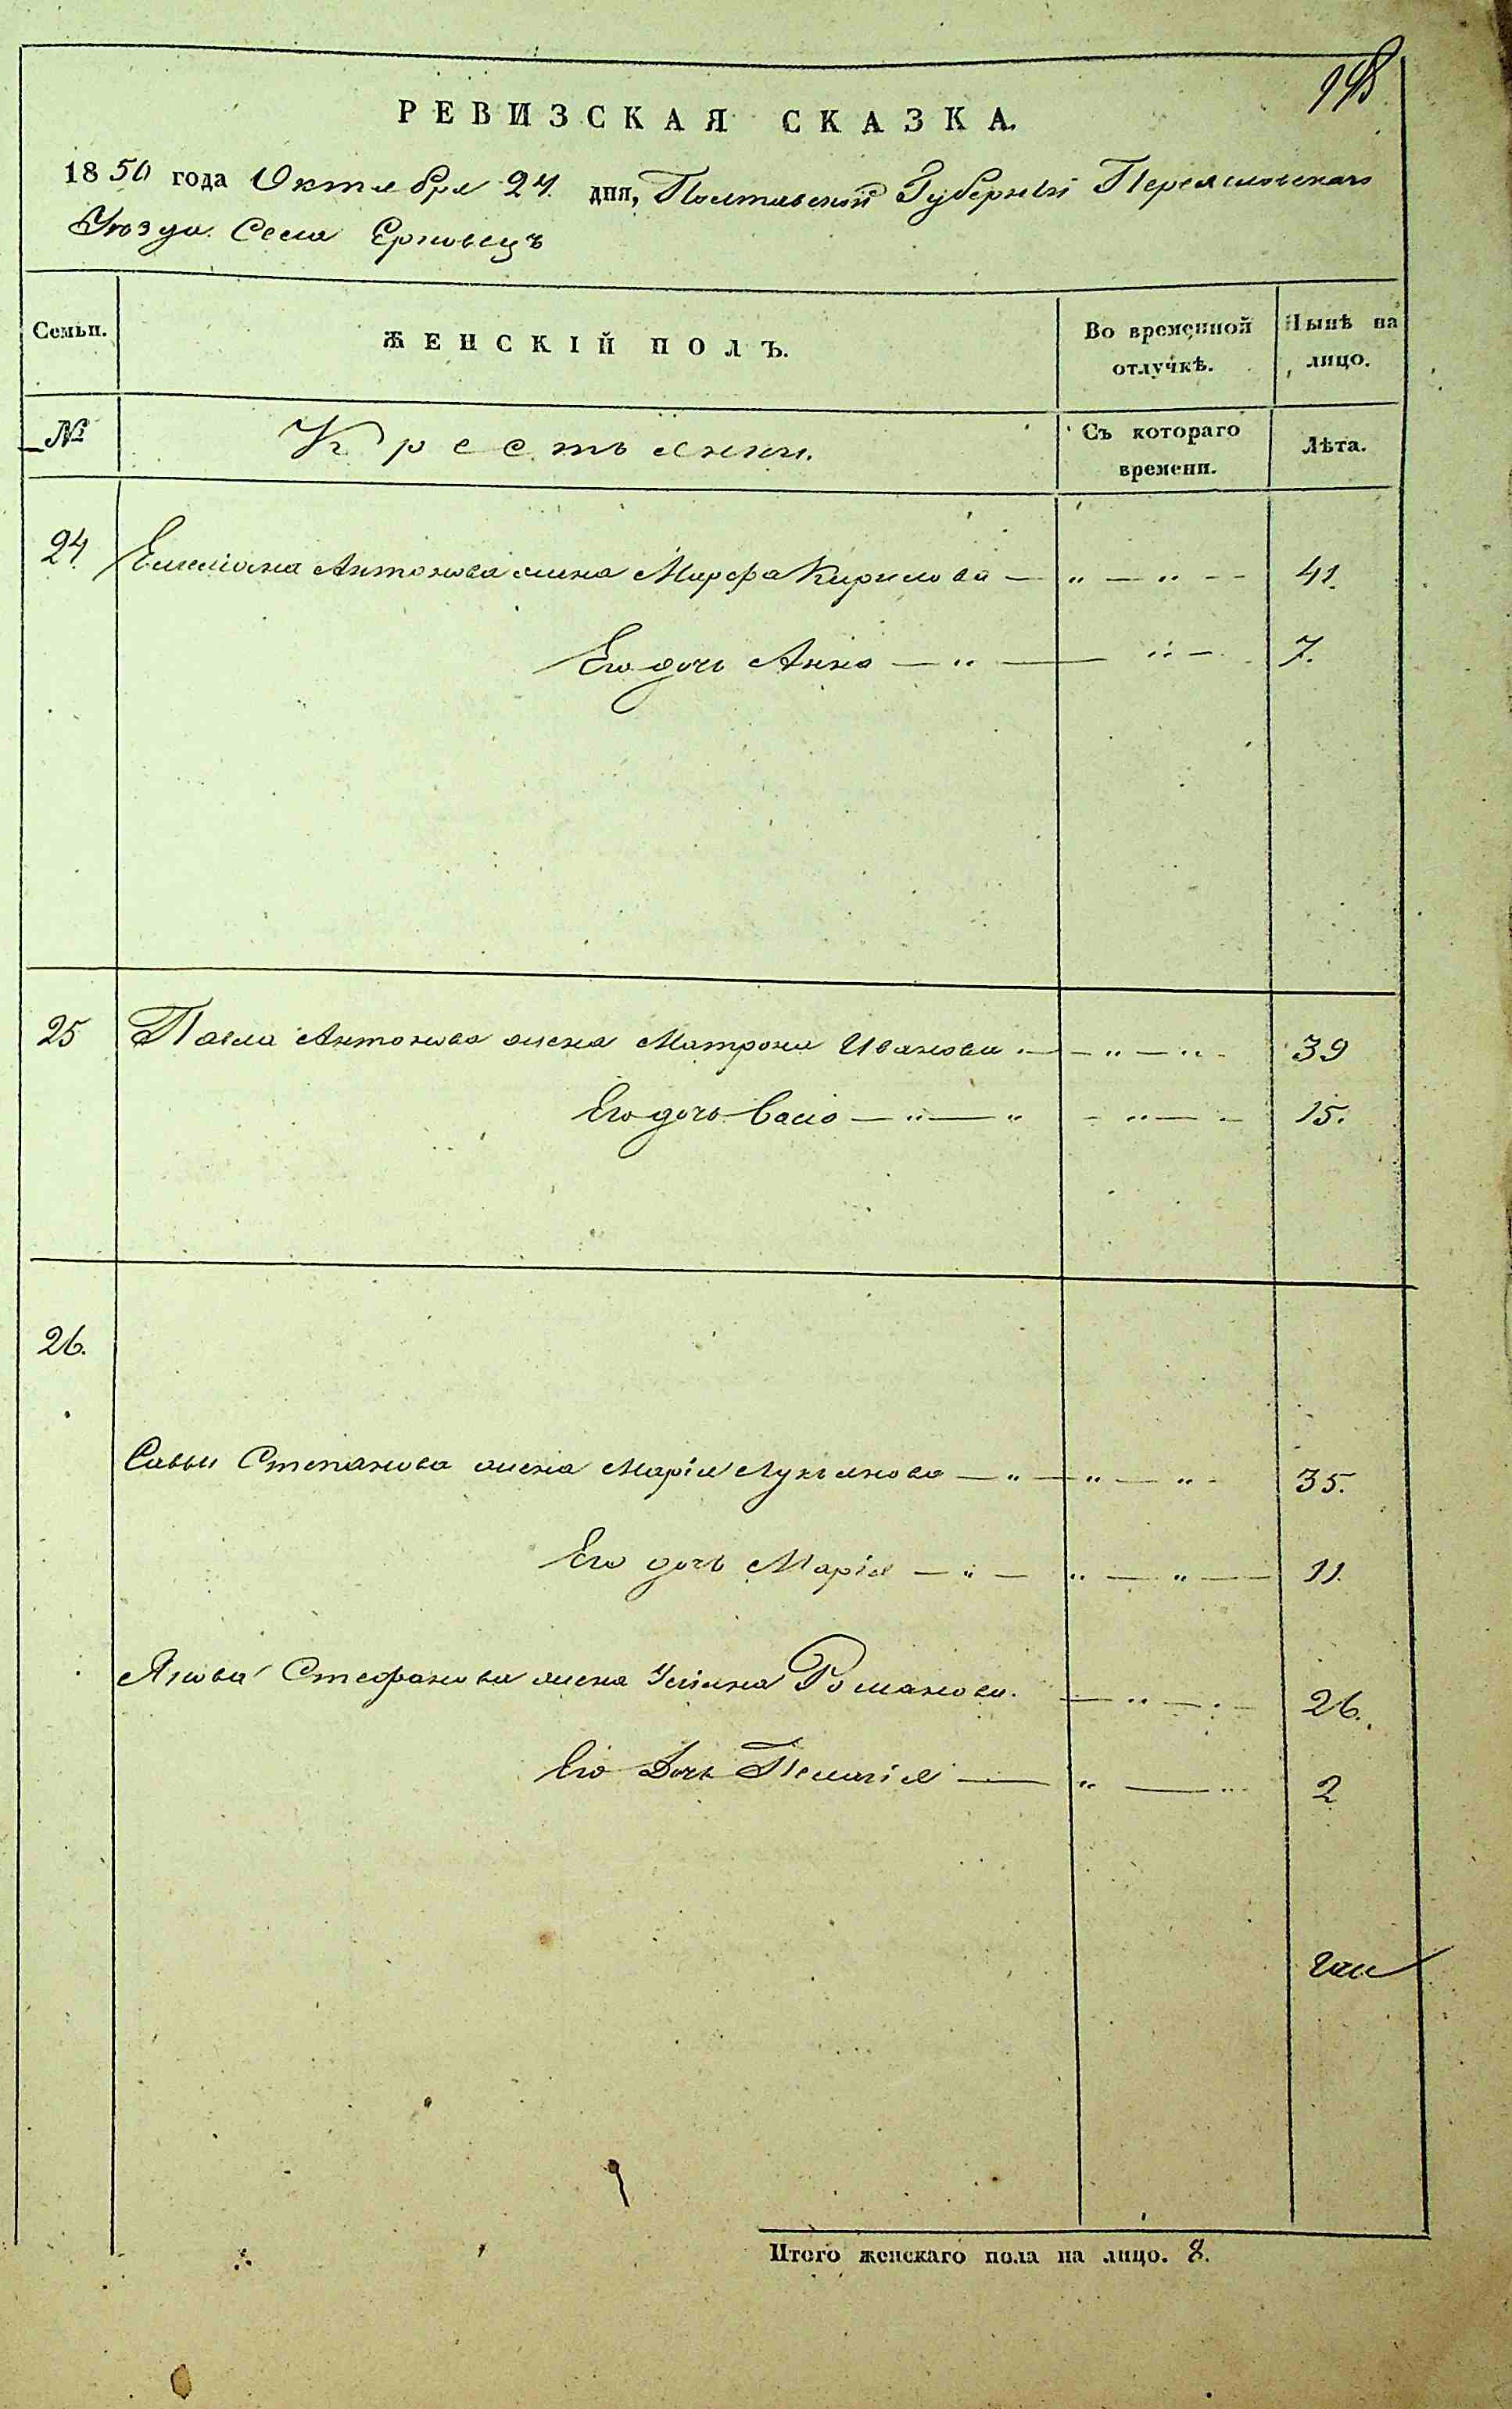 198
РЕВИЗСКАЯ СКАЗКА.
1850 года Октября 24 дня, Полтавской Губерніи Переяславскаго
Уѣзда Села Ерковецъ
Семьи.
ЖЕНСКІЙ ПОЛЪ.
Во временной отлучкѣ.
Нынѣ на лицо.
№
Крестьянки.
Съ котораго времени.
Лѣта.
24 Емеліана Антонова жена Марфа Кирилова — „ — „ — 41.
Его дочь Анна — „ — „ — 7.
25 Павла Антонова жена Матрона Иванова — „ — „ 39
Его дочь — „ — „ — „ — 15.
26.
Саввы Степанова жена Марія Лукьянова — „ — „ — „ 35.
Его дочь Марія — „ — „ — „ — 11.
Якова Стефанова жена Уліяна Романова. — „ — „ — 26.
Его Дочь Пелагія — „ — „ 2
Итого женскаго пола на лицо. 8.